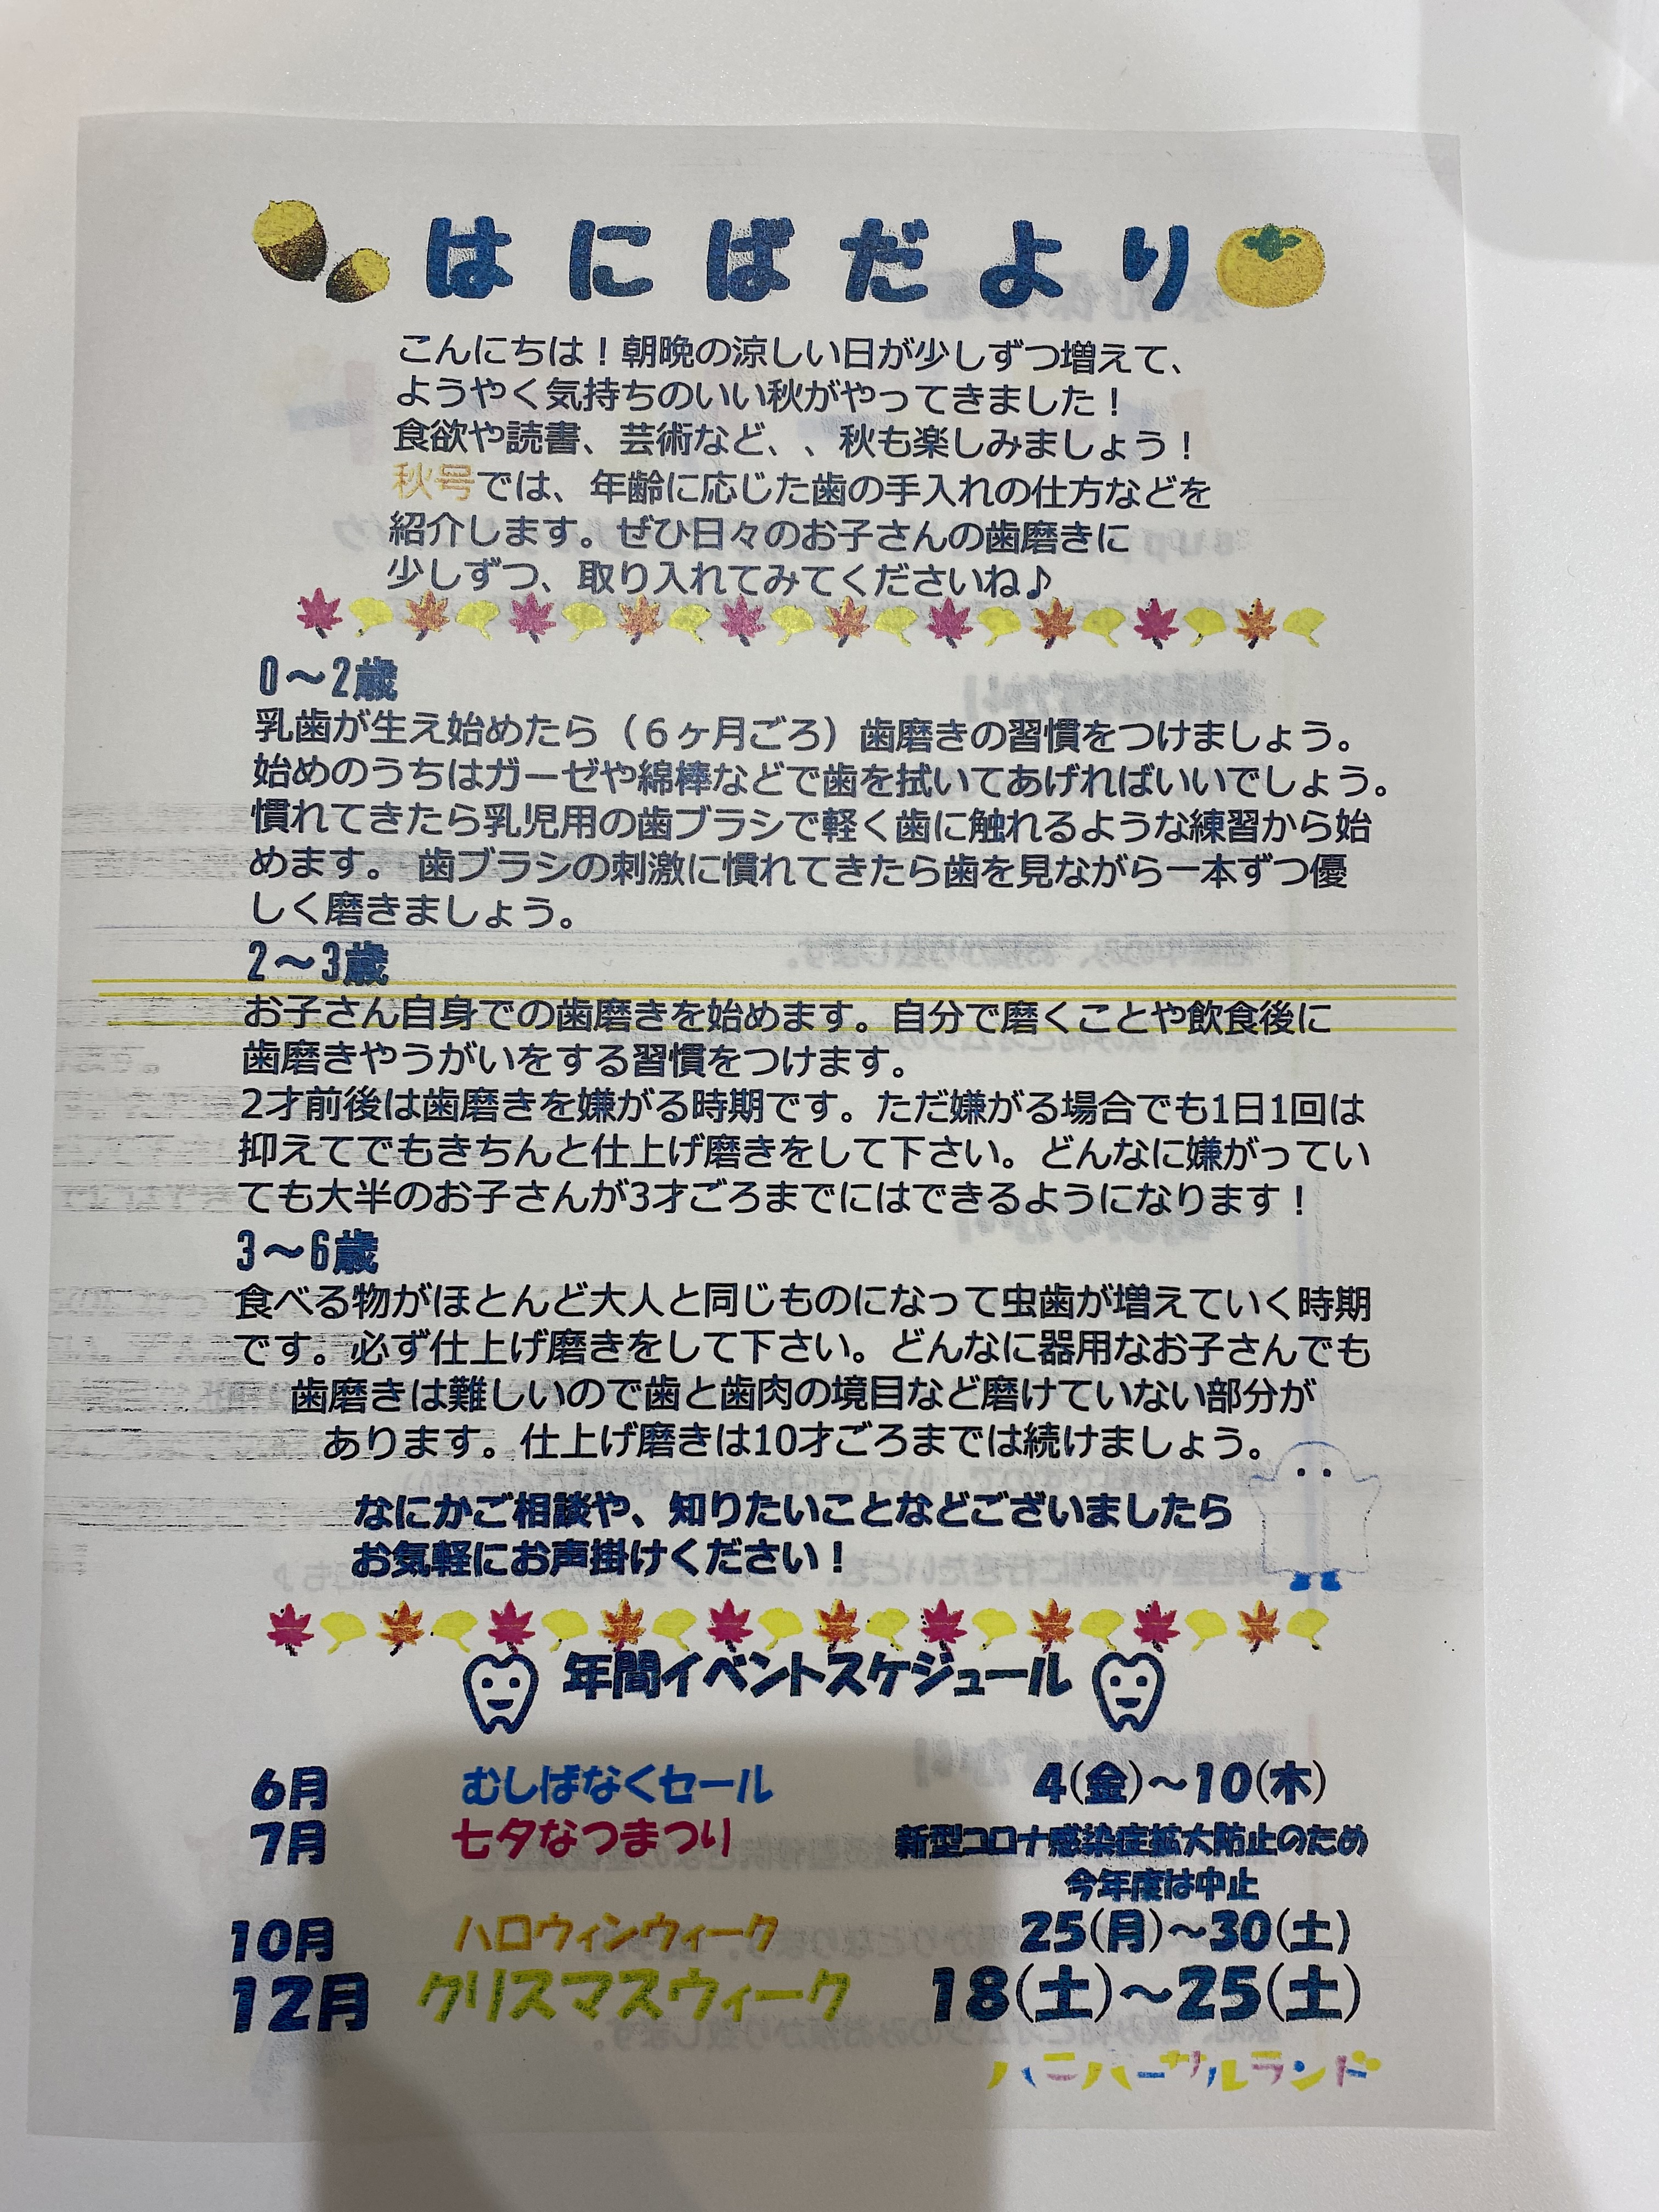 はにばだより
こんにちは！朝晩の涼しい日が少しずつ増えて、
ようやく気持ちのいい秋がやってきました！
食欲や読書、芸術など、、秋も楽しみましょう！
秋号では、年齢に応じた歯の手入れの仕方などを
紹介します。ぜひ日々のお子さんの歯磨きに
少しずつ、取り入れてみてくださいね♪
0～2歳
乳歯が生え始めたら（６ヶ月ごろ）歯磨きの習慣をつけましょう。
始めのうちはガーゼや綿棒などで歯を拭いてあげればいいでしょう。
慣れてきたら乳児用の歯ブラシで軽く歯に触れるような練習から始
めます。 歯ブラシの刺激に慣れてきたら歯を見ながら一本ずつ優
しく磨きましょう。
2～3歳
お子さん自身での歯磨きを始めます。自分で磨くことや飲食後に
歯磨きやうがいをする習慣をつけます。
2才前後は歯磨きを嫌がる時期です。ただ嫌がる場合でも1日1回は
抑えてでもきちんと仕上げ磨きをして下さい。どんなに嫌がってい
ても大半のお子さんが3才ごろまでにはできるようになります！
3～6歳
食べる物がほとんど大人と同じものになって虫歯が増えていく時期
です。必ず仕上げ磨きをして下さい。どんなに器用なお子さんでも
歯磨きは難しいので歯と歯肉の境目など磨けていない部分が
あります。仕上げ磨きは10才ごろまでは続けましょう。
なにかご相談や、知りたいことなどございましたら
お気軽にお声掛けください！
年間イベントスケジュール
6月 むしばなくセール 4(金)～10(木)
7月 七夕なつまつり 新型コロナ感染症拡大防止のため
今年度は中止
10月 ハロウィンウィーク 25(月)～30(土)
12月 クリスマスウィーク 18(土)～25(土)